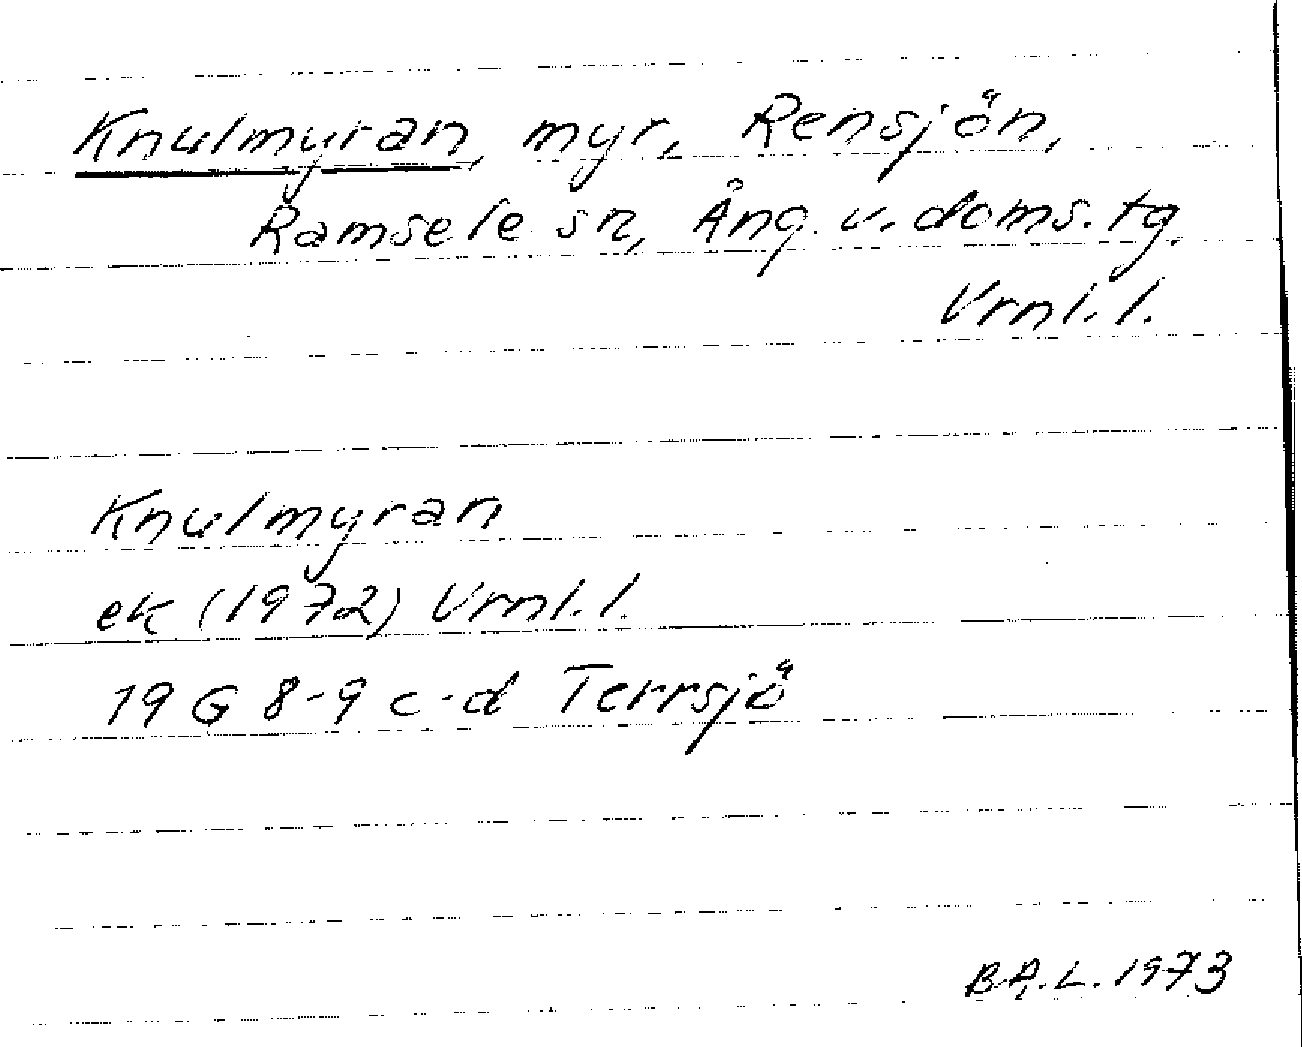 Knulmyran, myr, Rensjön,
Ramsele sn, Ång. v. doms. tg.
Vrnl. l.
Knulmyran
ek (1972) Vrnl. l.
19 G 8-9 c-d Terrsjö
B.Å.L. 1973